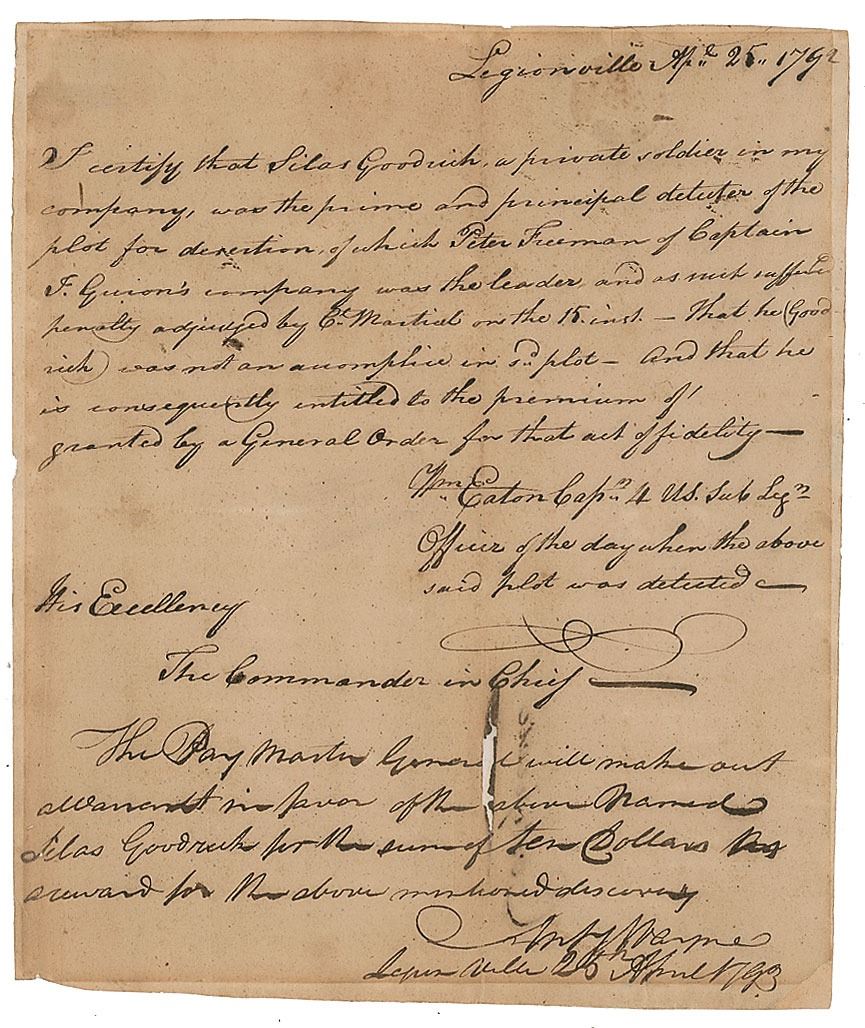 Legionville Apl. 25.. 1792
I certify that Silas Goodrich, a private soldier in my
company, was the prime and principal detecter of the
plot for desertion, of which Peter Freeman of Captain
I. Guion's company was the leader, and as such suffered
penalty adjudged by Ct. Martial on the 15. inst. — That he (Good-
rich) was not an acomplice in sd. plot — And that he
is consequently intitled to the premium of
granted by a General Order for that act of fidelity —
Wm. Eaton Capn. 4 US. Sub Legn
Officer of the day when the above
said plot was detected —
His Excellency
The Commander in Chief —
The Pay Master General will make out
a Warrant in favor of the above Named
Silas Goodrich for the sum of ten Dollars As
a reward for the above mentioned discovery
Anty Wayne
Legion Ville 25th April 1793